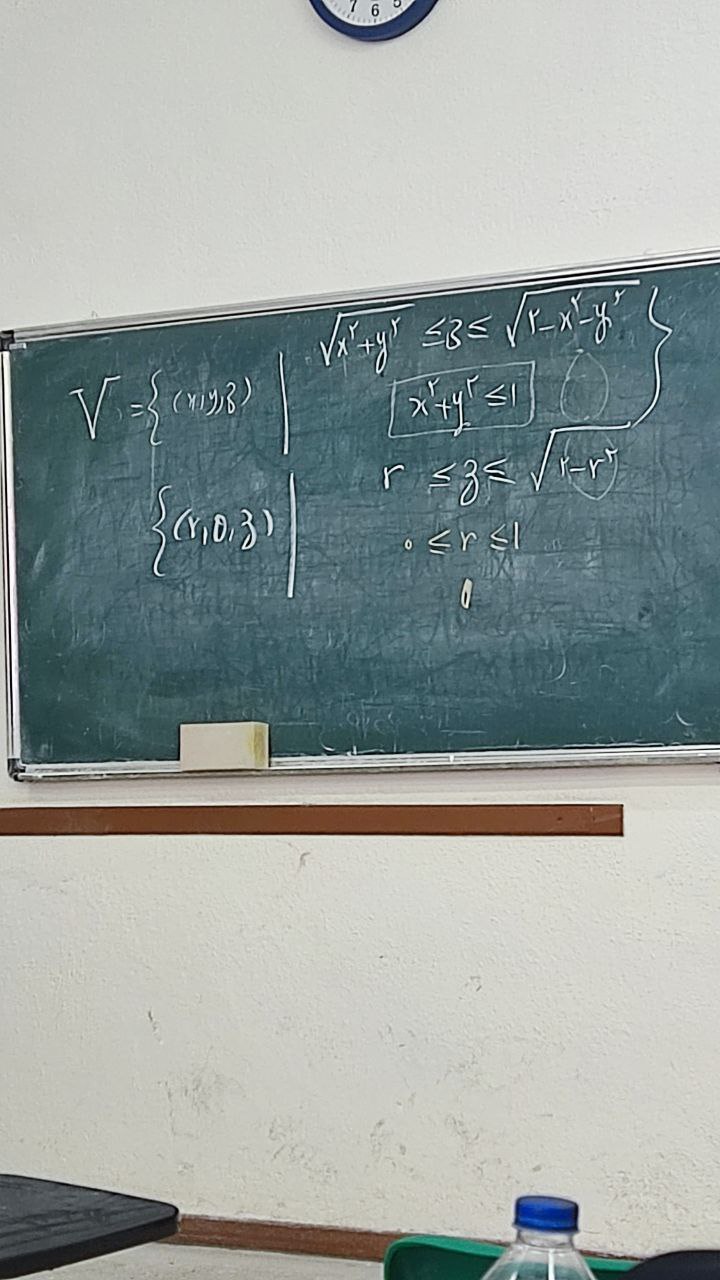 7 6 5
V = { (x,y,z) | √x۲+y۲ ≤ z ≤ √۲-x۲-y۲ }
x۲+y۲ ≤ 1
{(r,θ,z) | r ≤ z ≤ √۲-r۲
۰ ≤ r ≤ 1